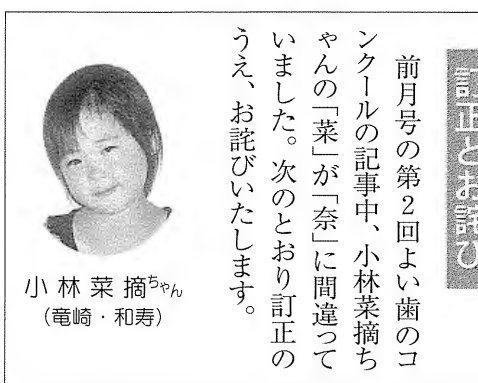 訂正とお詫び
前月号の第2回よい歯のコ
ンクールの記事中、小林菜摘ち
ゃんの「菜」が「奈」に間違って
いました。次のとおり訂正の
うえ、お詫びいたします。
小林菜摘ちゃん
(竜崎・和寿)